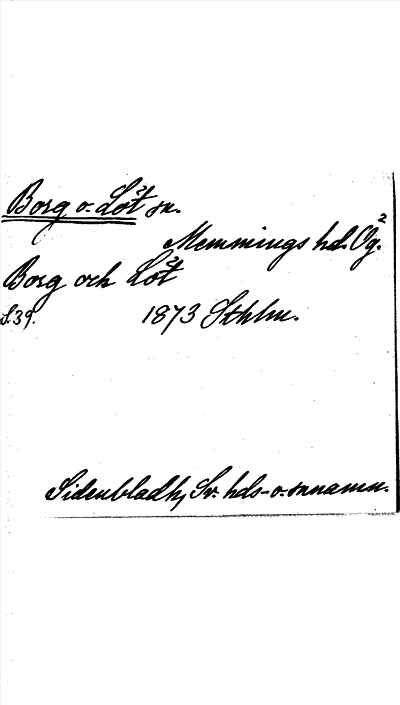 Borg o. Löt sn.
Memmings hd. Ög.²
Borg och Löt
S. 39. 1873 Sthlm.
Sidenbladh, Sv. hds- o. snnamn.